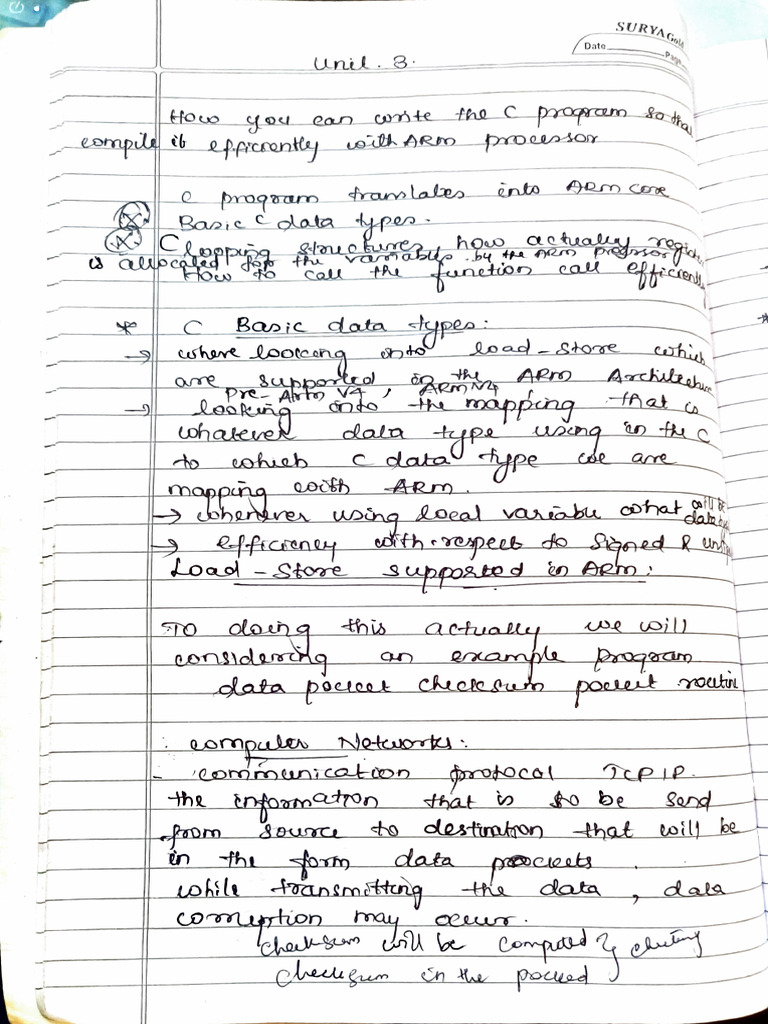 SURYA Gold
Date
Page
Unit. 3.
How you can write the C program so that
compile it efficiently with ARM processor
C program translates into ARM core
Basic C data types.
C looping structures, how actually regist
is allocated for the variables by the ARM processor
How to call the function call efficiently
* C Basic data types:
→ where looking onto load-store which
are supported in the ARM Architecture
Pre-Arm V4, ARMV4
→ looking onto the mapping that is
whatever data type using in the C
to which C data type we are
mapping with ARM.
→ whenever using local variable what will be
data
→ efficiency with respect to signed &
Load-Store supported in ARM:
To doing this actually we will
considering an example program
data pocket checksum pocket routin
computer Networks:
- communication protocol TCP IP.
the information that is to be send
from source to destination that will be
in the form data pockets.
while transmitting the data, data
corruption may occur.
checksum will be computed
checksum in the